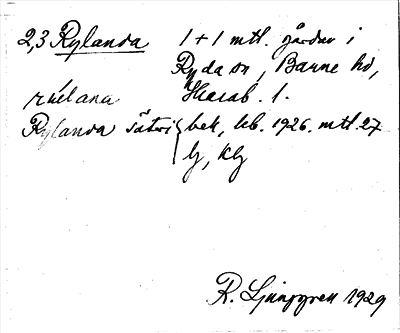 2,3 Rylanda 1+1 mtl. gårdar i
Ryda sn, Barne hd,
Skarab. l.
Rylanda säteri bek, kb. 1926. mtl. 27
lj, Klj
R. Ljunggren 1929